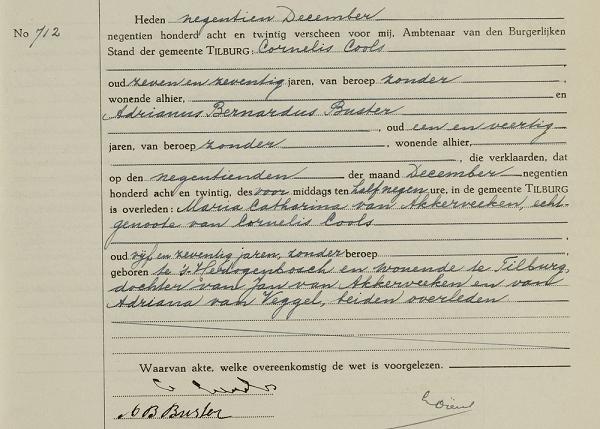 No 712
Heden negentien December
negentien honderd acht en twintig verscheen voor mij, Ambtenaar van den Burgerlijken
Stand der gemeente TILBURG: Cornelis Cools
oud zeven en zeventig jaren, van beroep zonder,
wonende alhier, en
Adrianus Bernardus Buster
, oud een en veertig
jaren, van beroep zonder, wonende alhier,
, die verklaarden, dat
op den negentienden der maand December negentien
honderd acht en twintig, des voor middags ten half negen ure, in de gemeente TILBURG
is overleden: Maria Catharina van Akkerveeken, echt-
genoote van Cornelis Cools
oud vijf en zeventig jaren, zonder beroep,
geboren te 's-Hertogenbosch en wonende te Tilburg,
dochter van Jan van Akkerveeken en van
Adriana van Veggel, beiden overleden
Waarvan akte, welke overeenkomstig de wet is voorgelezen.
A B Buster